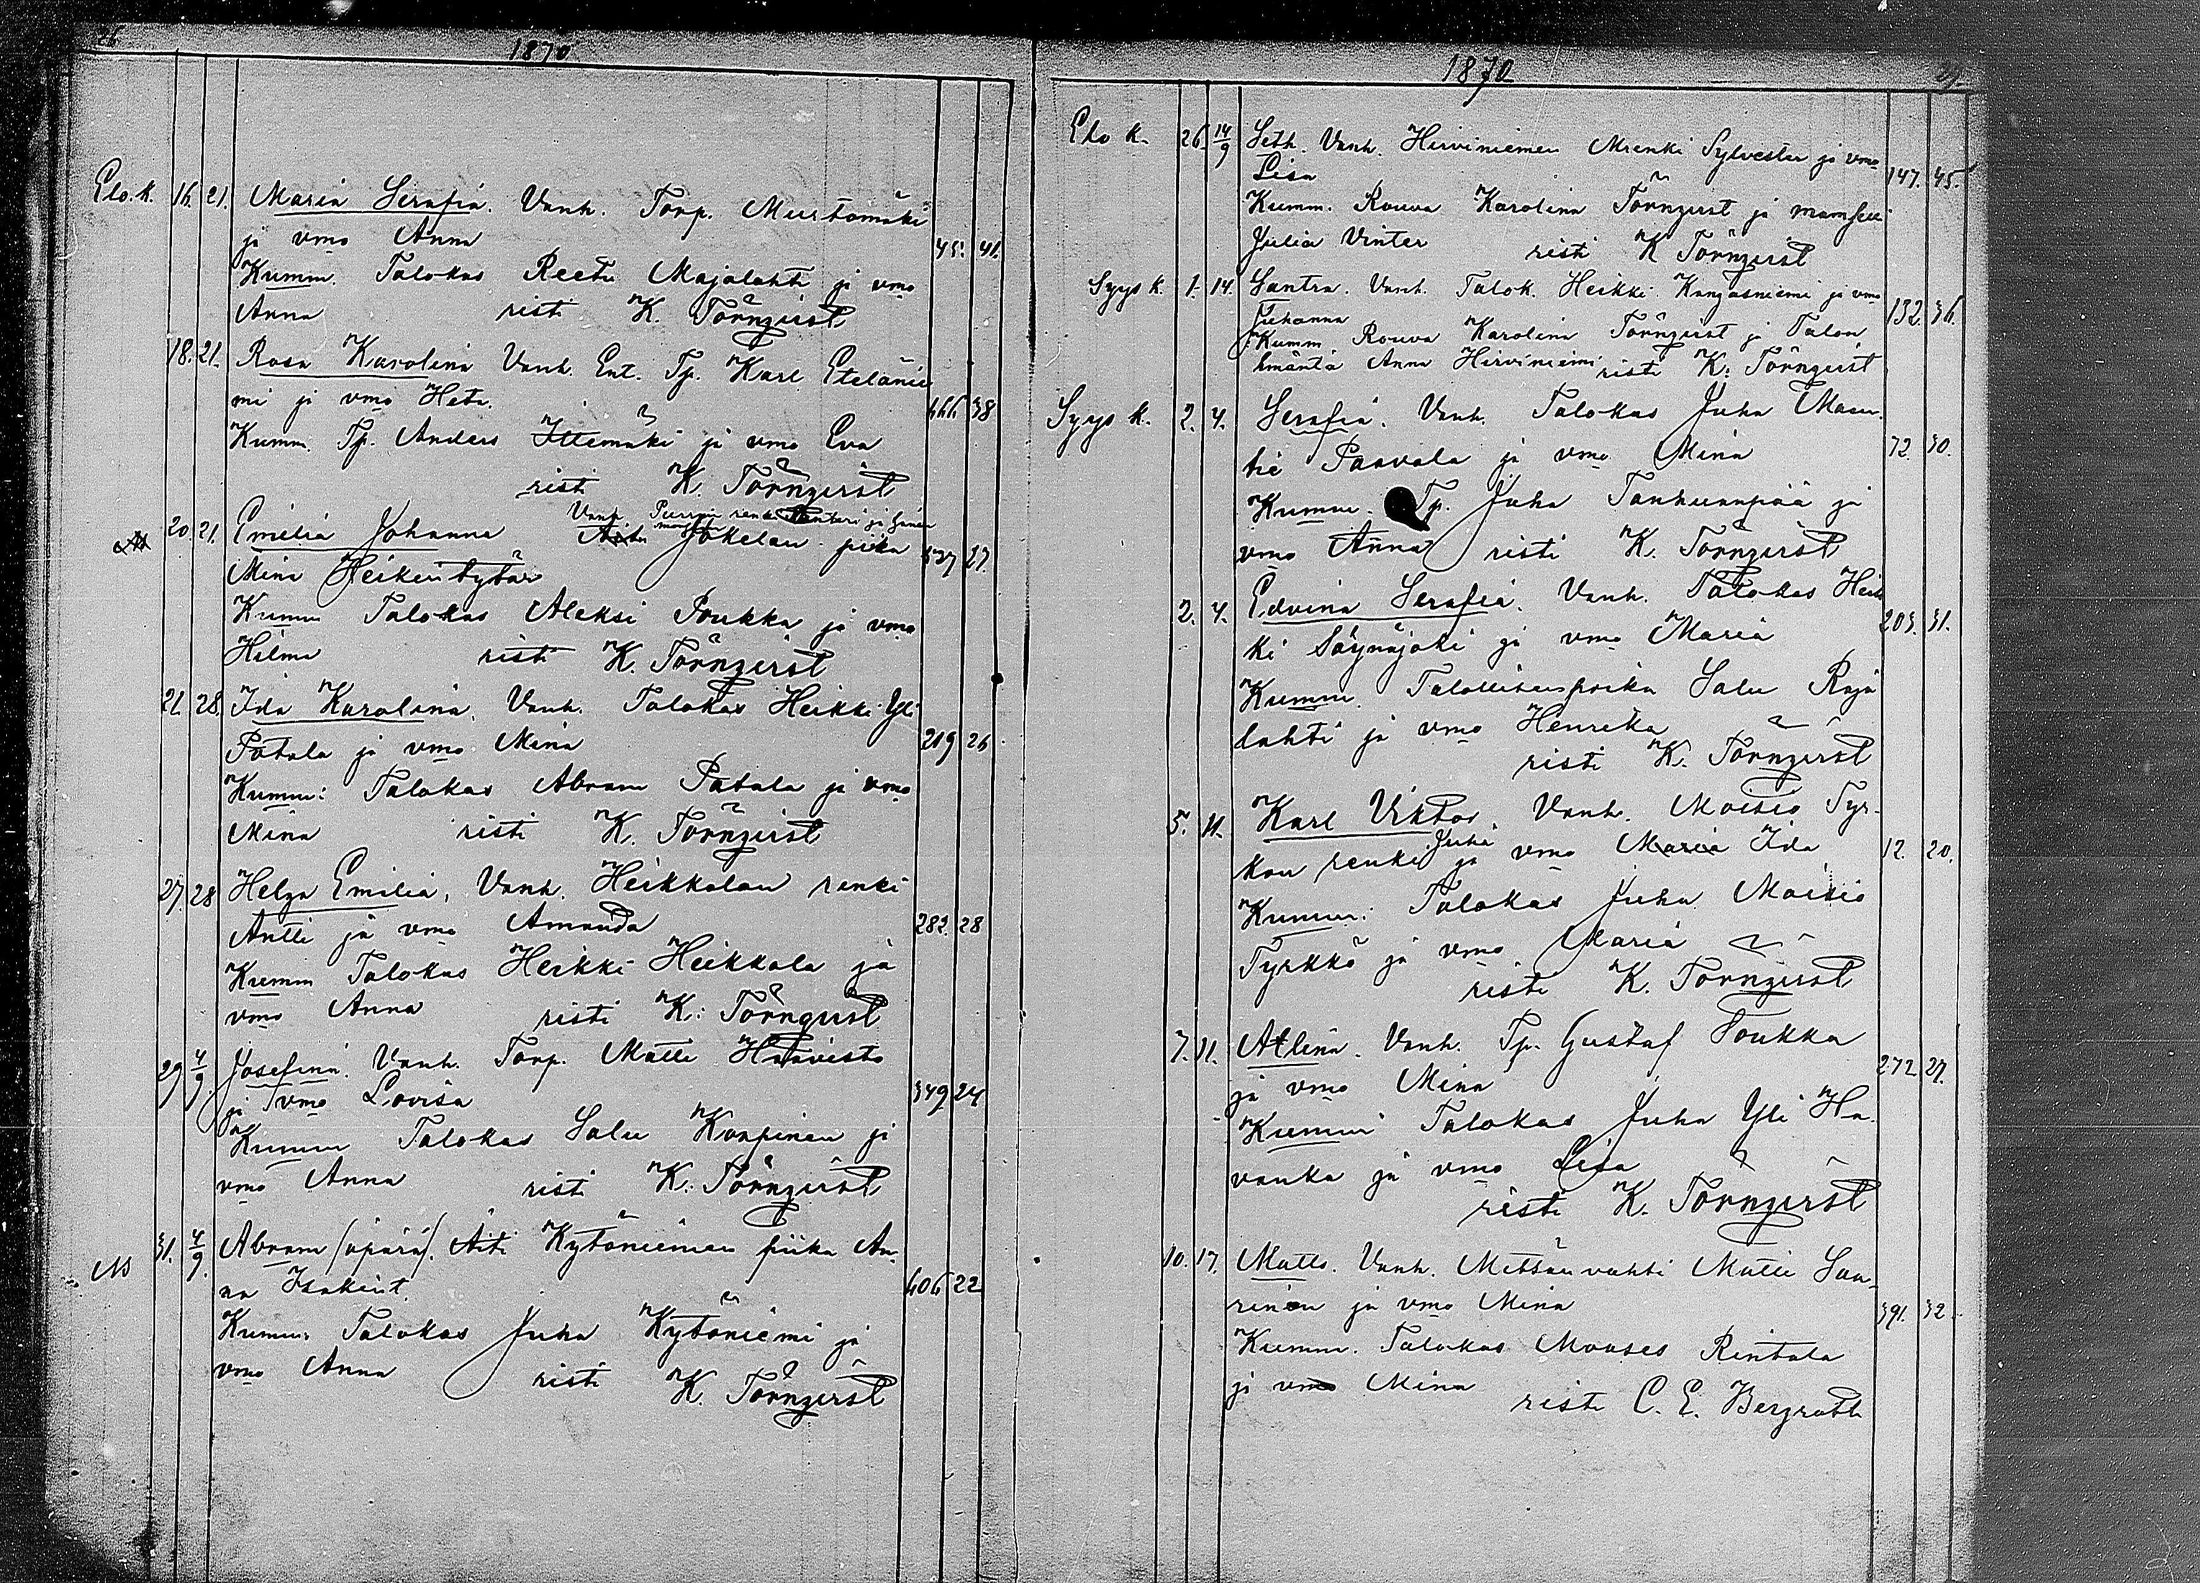 26
1870
Elo. k. 16. 21. Maria Serafia. Vanh. Torp. Murtomäki
ja vmo Anna 45. 41.
Kumm. Talokas Reeti Majalahti ja vmo
Anna risti K. Törnqvist
18. 21. Rosa Karolina Vanh. Ent. Tp. Karl Etelänie
mi ja vmo Heta. 38
Kumm. Tp. Anders Ittemäki ja vmo Eva
risti K. Törnqvist
Vanh. renki ja hänen
20. 21. Emilia Johanna Jokelan piika 27.
Mina Heikintytär
Kumm Talokas Aleksi Poukka ja vmo
Hilma risti K. Törnqvist
21. 28. Ida Karolina. Vanh. Talokas Heikki Yli
Patala ja vmo Mina 219 26
Kumm: Talokas Abram Patala ja vmo
Mina risti K. Törnqvist
27. 28 Helga Emilia, Vanh. Heikkalan renki
Antti ja vmo Amanda 282. 28
Kumm Talokas Heikki Heikkala ja
vmo Anna risti K. Törnqvist
29 4/9 Josefina. Vanh. Torp. Matti Haavisto
ja vmo Lovisa 349 24
Kumm Talokas Salu Korpinen ja
vmo Anna risti K. Törnqvist
31. 4/9. Abram (äpärä). Äiti Kytöniemen piika An
na Isakint. 406 22
Kumm: Talokas Juha Kytöniemi ja
vmo Anna risti K. Törnqvist
1870
27.
Elo k. 26. 14/9 Seth. Vanh. Hirviniemen Mrenki Sylvester ja vmo
Lisa 147. 45.
Kumm. Rouva Karolina Törnqvist ja mamselli
Julia Vinter risti K Törnqvist
Syys k. 1. 14. Santra. Vanh. Talok. Heikki Kangasniemi ja vmo
Juhanna 132. 36.
Kumm Rouva Karolina Törnqvist ja Talon
emäntä Anna Hirviniemi risti K. Törnqvist
Syys k. 2. 4. Serafia. Vanh. Talokas Juha Maun
tie Paavola ja vmo Mina 72. 30.
Kumm. Tp. Juha Tanhuanpää ja
vmo Anna risti K. Törnqvist
2. 4. Edvina Serafia. Vanh. Talokas Heik
ki Säynäjoki ja vmo Maria 203. 31.
Kumm. Talollisenpoika Salu Raja
lahti ja vmo Henrika
risti K. Törnqvist
5. 11. Karl Viktor. Vanh. Moisio Tyr-
kön renki Juha ja vmo Maria Ida 12. 20.
Kumm: Talokas Juha Moisio
Tyrkkö ja vmo Maria
risti K. Törnqvist
7. 11. Allina. Vanh. Tp. Gustaf Poukka
ja vmo Mina 272 27.
Kumm Talokas Juha Yli Ha-
vanka ja vmo Lisa
risti K. Törnqvist
10. 17. Matts. Vanh. Mettsän vahti Matti Saa-
rinen ja vmo Mina 391. 32
Kumm. Talokas Mooses Rintala
ja vmo Mina risti C. E. Bergroth